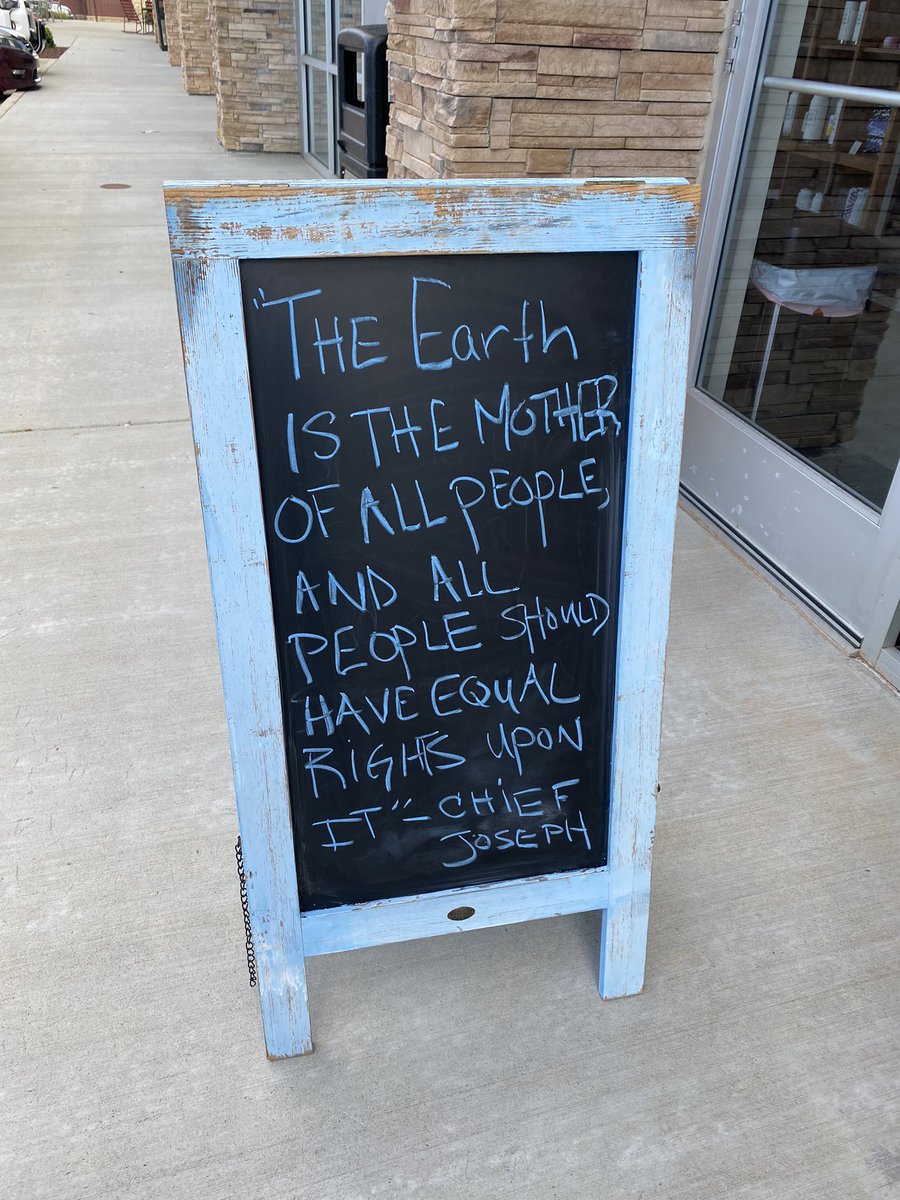 "THE Earth
IS THE MOTHER
OF ALL PEOPLE,
AND ALL
PEOPLE SHOULD
HAVE EQUAL
RIGHTS UPON
IT" - CHIEF
JOSEPH